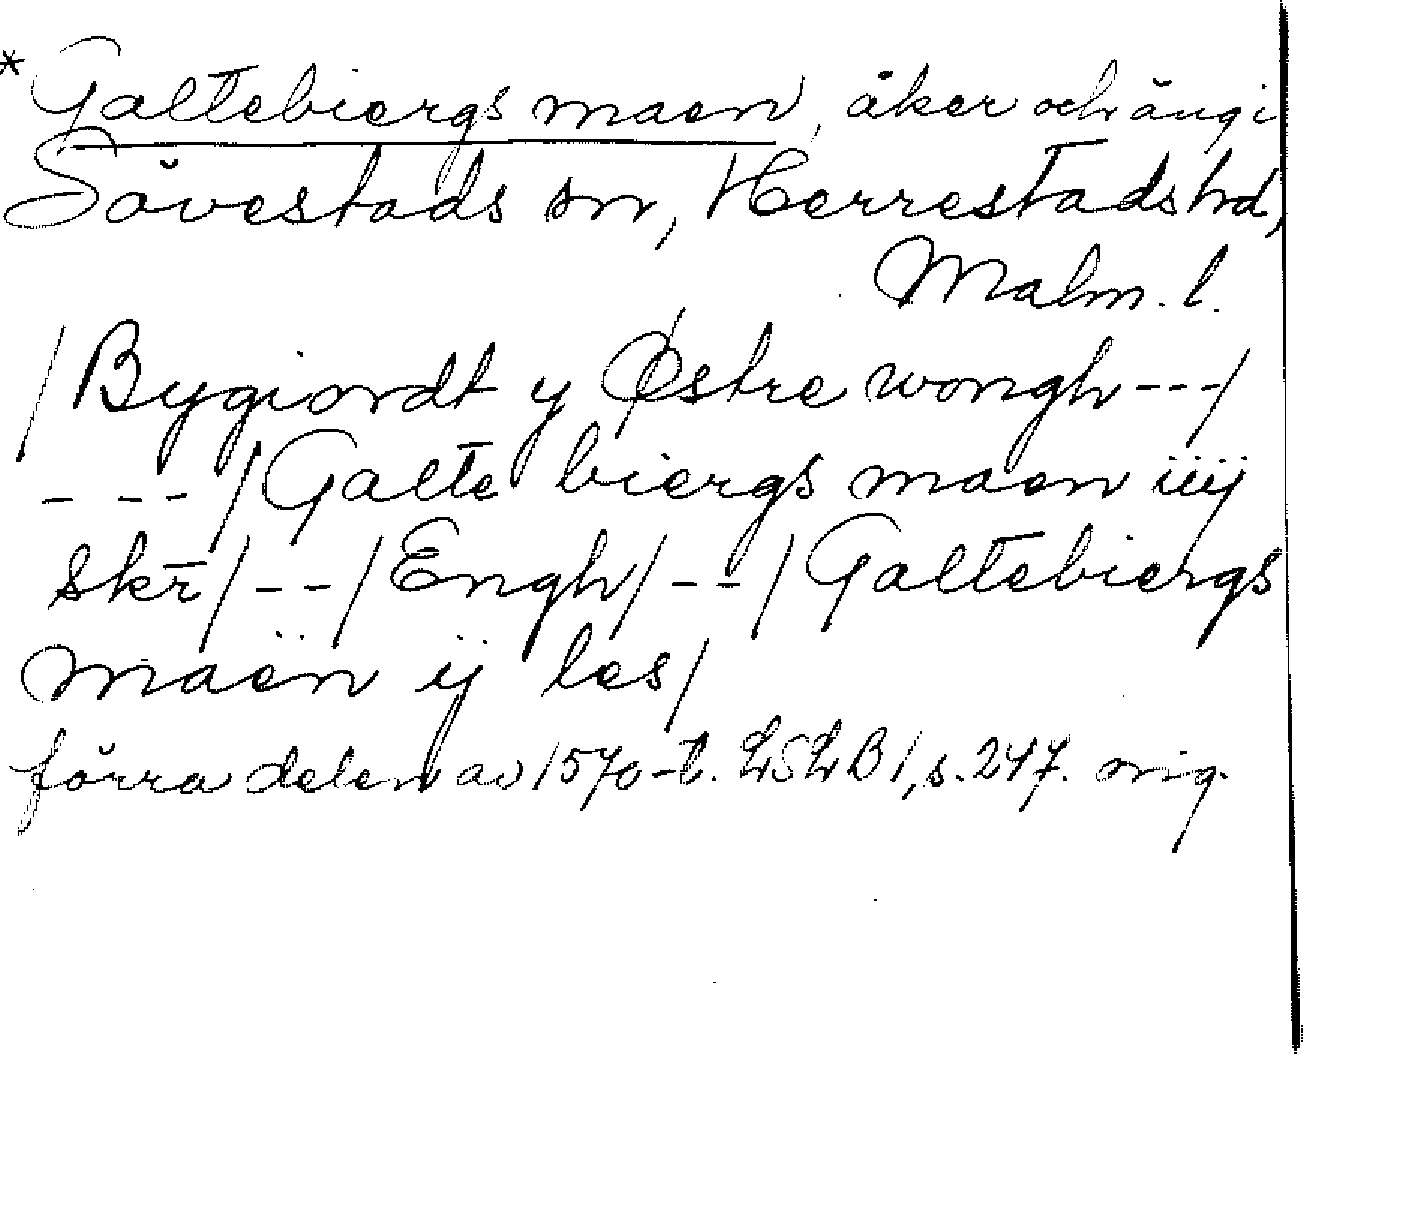 * Galtebiergs maen, åker och äng i
Sövestads sn, Herrestads hd,
Malm. l.
/Bygiordt y Østre wongh---/
- -- /Galte biergs maen iiij
skr̄/--/Engh/--/Galtebiergs
maën ij les/
förra delen av 1570-t. LSLB1, s. 247. orig.